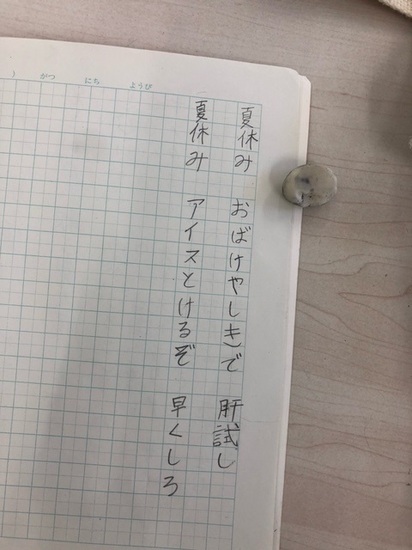 ）　がつ　にち　ようび
夏休み　おばけやしきで　肝試し
夏休み　アイスとけるぞ　早くしろ